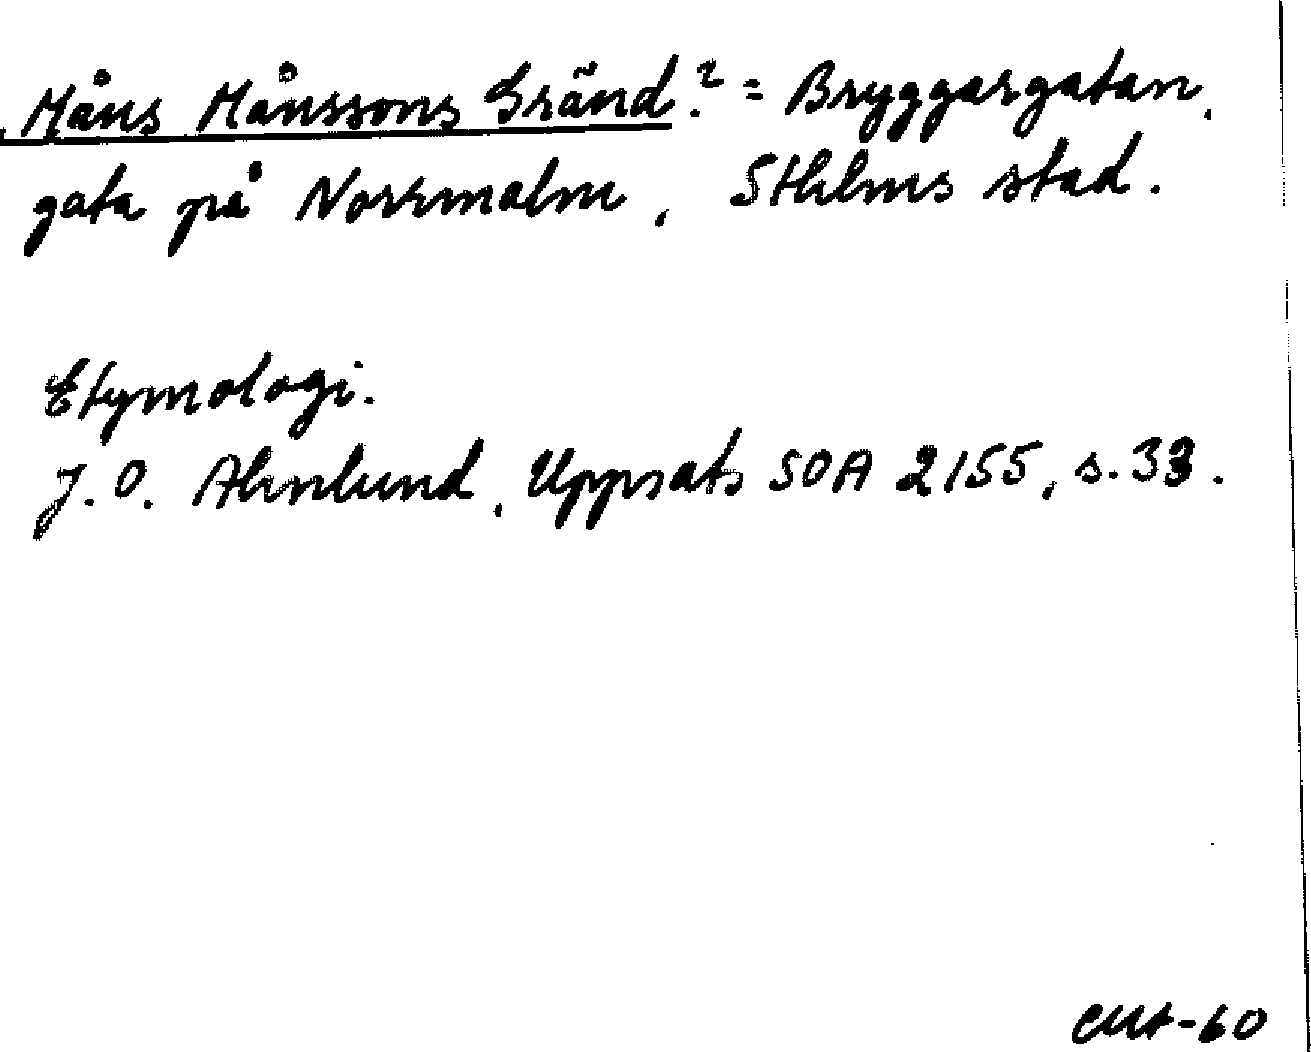 Måns Månssons Gränd? = Bryggargatan,
gata på Norrmalm, Sthlms stad.
Etymologi.
J. O. Ahnlund, Uppsats SOA 2155, s. 33.